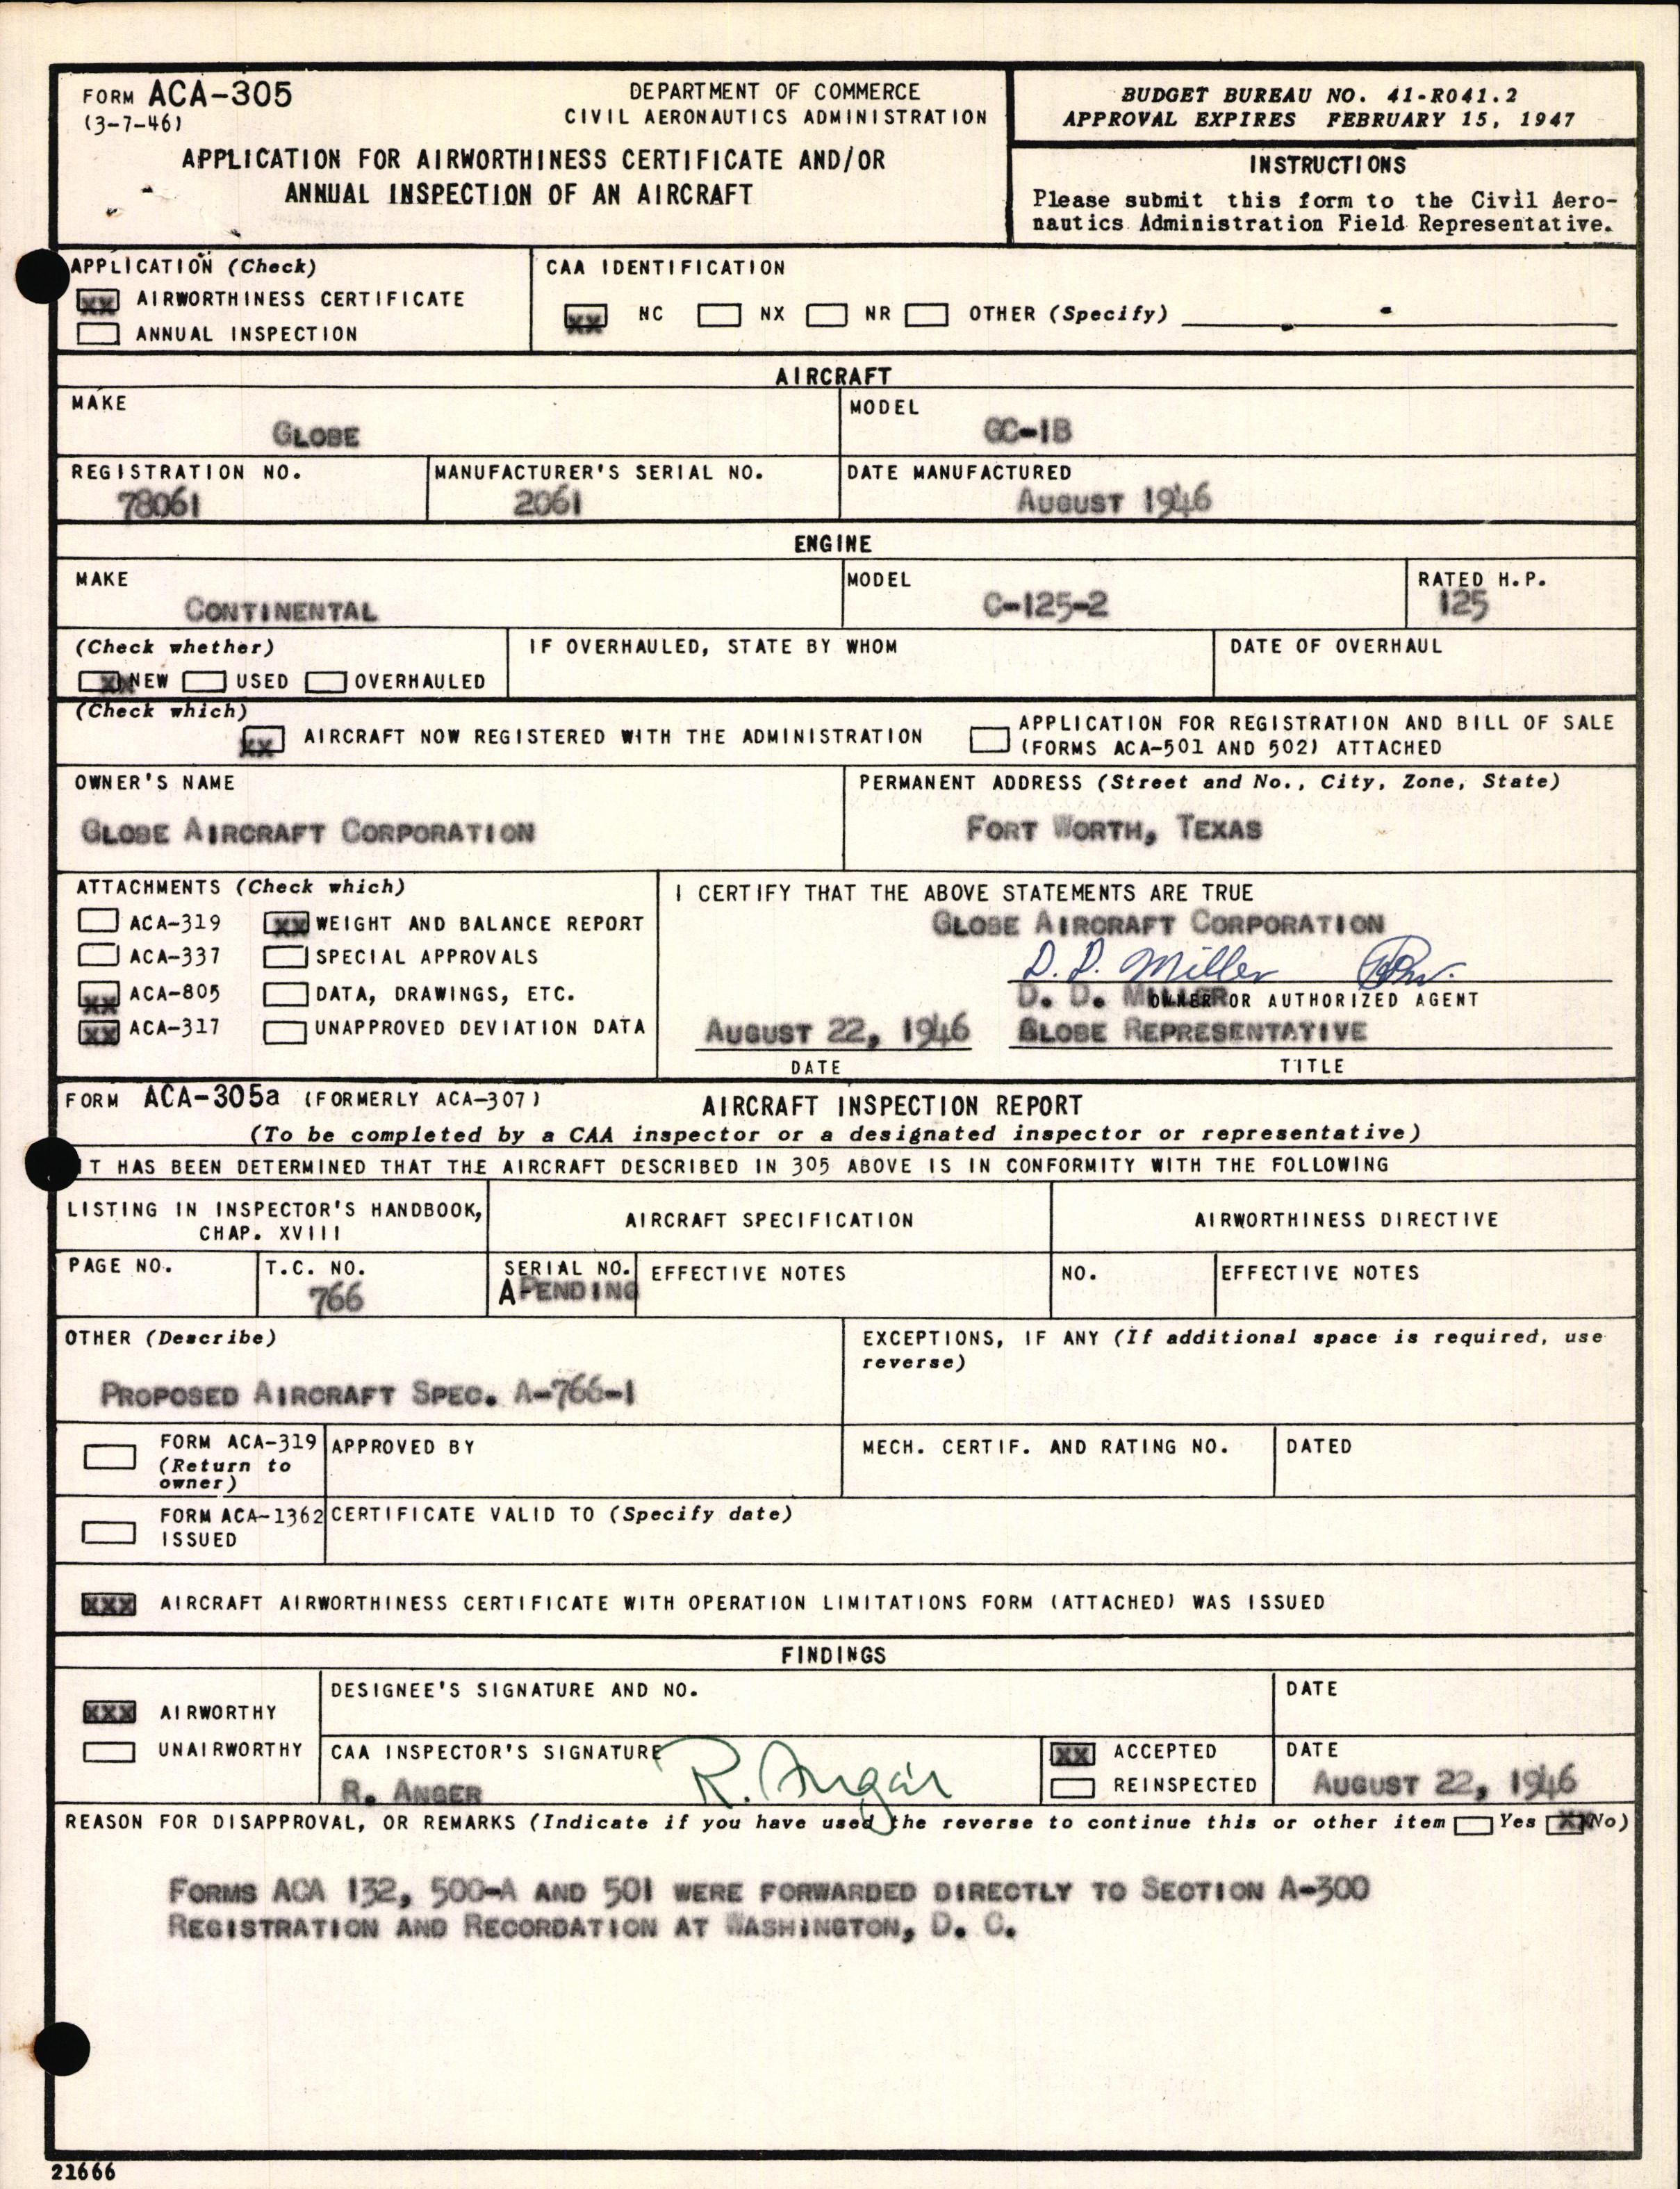 FORM ACA-305
(3-7-46)
DEPARTMENT OF COMMERCE
CIVIL AERONAUTICS ADMINISTRATION
APPLICATION FOR AIRWORTHINESS CERTIFICATE AND/OR
ANNUAL INSPECTION OF AN AIRCRAFT
BUDGET BUREAU NO. 41-R041.2
APPROVAL EXPIRES FEBRUARY 15, 1947
INSTRUCTIONS
Please submit this form to the Civil Aero-
nautics Administration Field Representative.
APPLICATION (Check)
XX AIRWORTHINESS CERTIFICATE
ANNUAL INSPECTION
CAA IDENTIFICATION
XX NC NX NR OTHER (Specify)
AIRCRAFT
MAKE
GLOBE
MODEL
GC-1B
REGISTRATION NO.
78061
MANUFACTURER'S SERIAL NO.
2061
DATE MANUFACTURED
AUGUST 1946
ENGINE
MAKE
CONTINENTAL
MODEL
C-125-2
RATED H.P.
125
(Check whether)
XX NEW USED OVERHAULED
IF OVERHAULED, STATE BY WHOM
DATE OF OVERHAUL
(Check which)
XX AIRCRAFT NOW REGISTERED WITH THE ADMINISTRATION
APPLICATION FOR REGISTRATION AND BILL OF SALE
(FORMS ACA-501 AND 502) ATTACHED
OWNER'S NAME
GLOBE AIRCRAFT CORPORATION
PERMANENT ADDRESS (Street and No., City, Zone, State)
FORT WORTH, TEXAS
ATTACHMENTS (Check which)
ACA-319 XX WEIGHT AND BALANCE REPORT
ACA-337 SPECIAL APPROVALS
XX ACA-805 DATA, DRAWINGS, ETC.
XX ACA-317 UNAPPROVED DEVIATION DATA
I CERTIFY THAT THE ABOVE STATEMENTS ARE TRUE
GLOBE AIRCRAFT CORPORATION
D. D. Miller
D. D. MILLER OWNER OR AUTHORIZED AGENT
AUGUST 22, 1946 GLOBE REPRESENTATIVE
DATE TITLE
FORM ACA-305a (FORMERLY ACA-307)
AIRCRAFT INSPECTION REPORT
(To be completed by a CAA inspector or a designated inspector or representative)
IT HAS BEEN DETERMINED THAT THE AIRCRAFT DESCRIBED IN 305 ABOVE IS IN CONFORMITY WITH THE FOLLOWING
LISTING IN INSPECTOR'S HANDBOOK,
CHAP. XVIII
AIRCRAFT SPECIFICATION
AIRWORTHINESS DIRECTIVE
PAGE NO.
T.C. NO.
766
SERIAL NO.
A PENDING
EFFECTIVE NOTES
NO.
EFFECTIVE NOTES
OTHER (Describe)
PROPOSED AIRCRAFT SPEC. A-766-1
EXCEPTIONS, IF ANY (If additional space is required, use
reverse)
FORM ACA-319
(Return to
owner)
APPROVED BY
MECH. CERTIF. AND RATING NO.
DATED
FORM ACA-1362
ISSUED
CERTIFICATE VALID TO (Specify date)
XXX AIRCRAFT AIRWORTHINESS CERTIFICATE WITH OPERATION LIMITATIONS FORM (ATTACHED) WAS ISSUED
FINDINGS
XXX AIRWORTHY
UNAIRWORTHY
DESIGNEE'S SIGNATURE AND NO.
DATE
CAA INSPECTOR'S SIGNATURE
R. ANGER R. Anger
XX ACCEPTED
REINSPECTED
DATE
AUGUST 22, 1946
REASON FOR DISAPPROVAL, OR REMARKS (Indicate if you have used the reverse to continue this or other item Yes XX No)
FORMS ACA 132, 500-A AND 501 WERE FORWARDED DIRECTLY TO SECTION A-300
REGISTRATION AND RECORDATION AT WASHINGTON, D. C.
21666